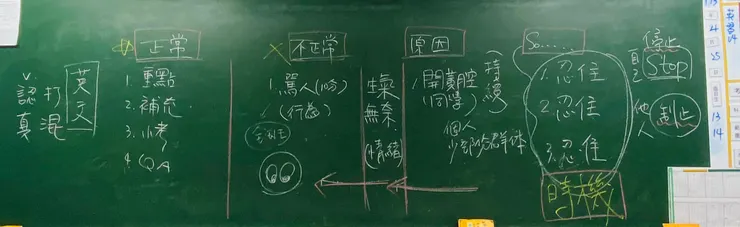 英文
打混
v.認真
正常
1. 重點
2. 補充
3. 小考
4. QA
不正常
1. 罵人(吵)
(行為)
生氣
無奈
(情緒)
原因
1. 開黃腔
(同學)
個人
(持續)
So.....
1. 忍住
2. 忍住
3. 忍住
時機
自己
停止
Stop
他人
制止
13
14